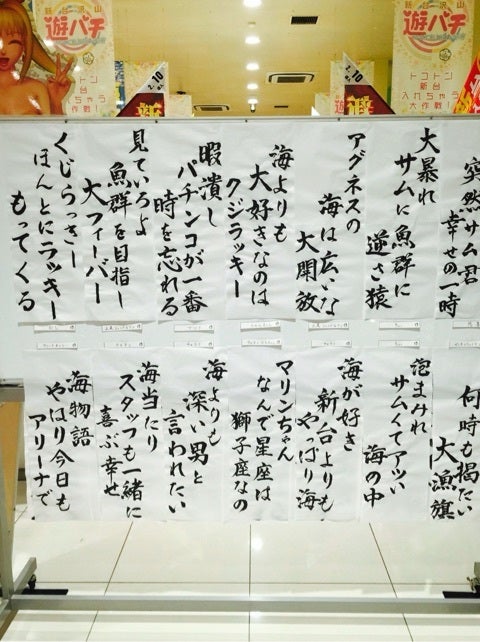 遊パチ
トコトン
新台
入れちゃう
大作戦!
遊パチ
トコトン
新台
入れちゃう
大作戦!
突然サム君
幸せの一時
大暴れ
サムに魚群に
逆さ猿
アグネスの
海は広いな
大開放
海よりも
大好きなのは
クジラッキー
暇潰し
パチンコが一番
時を忘れる
見ていろよ
魚群を目指し
大フィーバー
くじらっきー
ほんとにラッキー
もってくる
何時も掲たい
大漁旗
泡まみれ
サムくてアツい
海の中
海が好き
新台よりも
やっぱり海
マリンちゃん
なんで星座は
獅子座なの
海よりも
深い男と
言われたい
海当たり
スタッフも一緒に
喜ぶ幸せ
海物語
やはり今日も
アリーナで